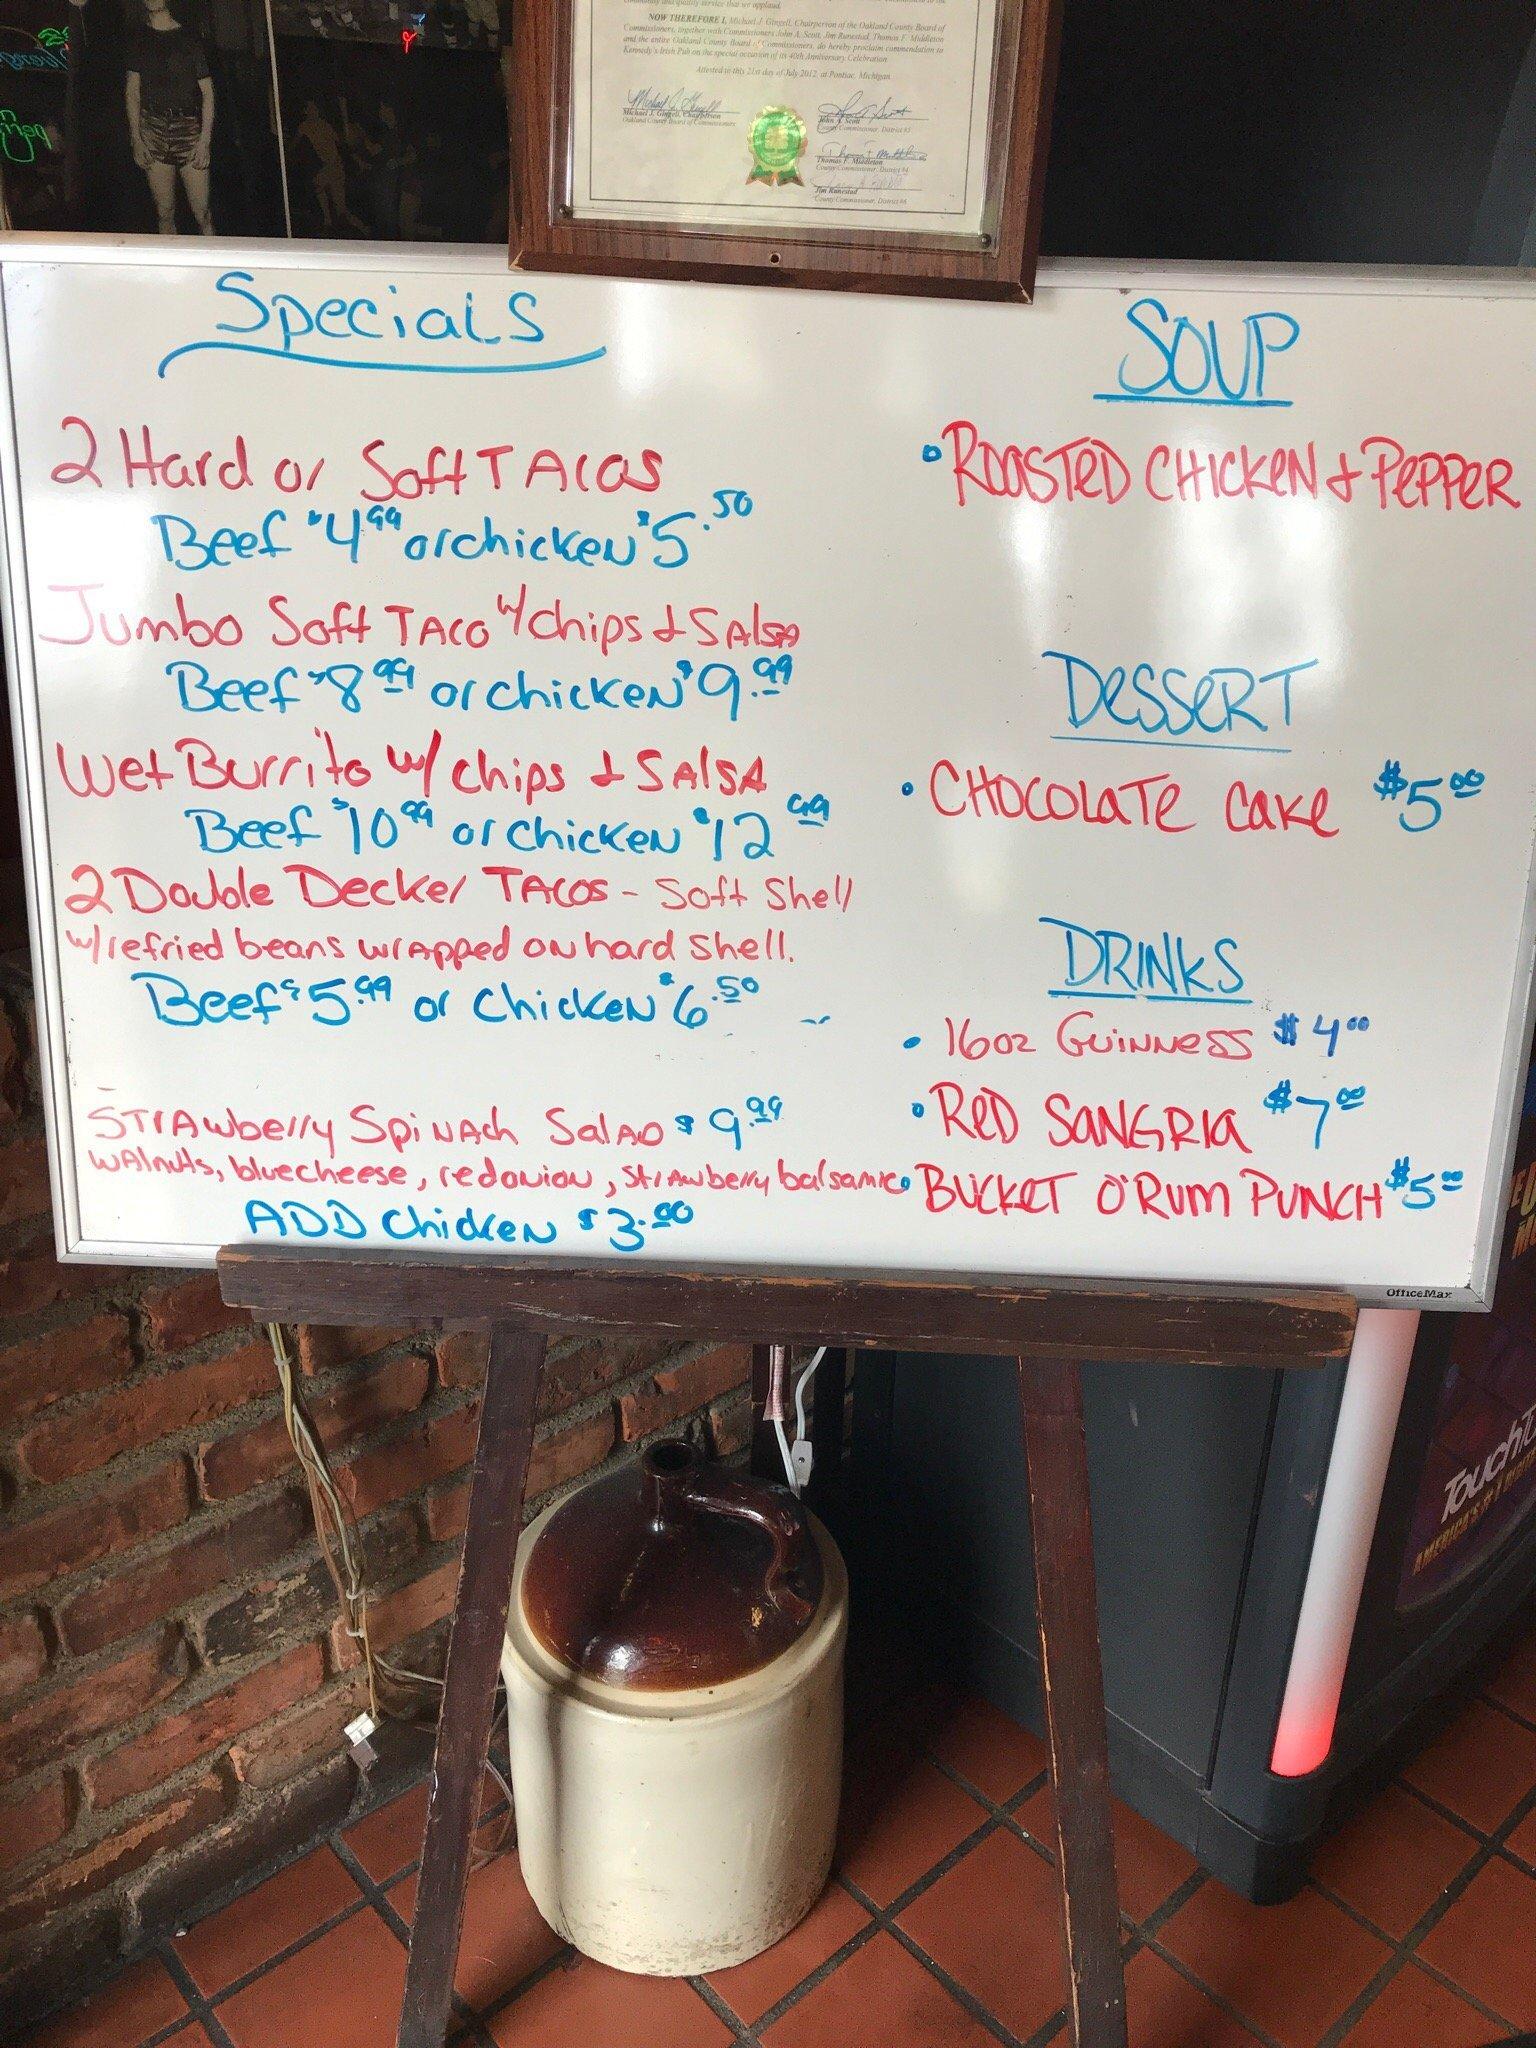 community and quality service that we applaud.
NOW THEREFORE I, Michael J. Gingell, Chairperson of the Oakland County Board of
Commissioners, together with Commissioners John A. Scott, Jim Runestad, Thomas F. Middleton
and the entire Oakland County Board of Commissioners, do hereby proclaim commendation to
Kennedy's Irish Pub on the special occasion of its 40th Anniversary Celebration.
Attested to this 21st day of July 2012, at Pontiac, Michigan.
Michael J. Gingell, Chairperson
Oakland County Board of Commissioners
John A. Scott
County Commissioner, District #5
Thomas F. Middleton
County Commissioner, District #4
Jim Runestad
County Commissioner, District #6
Specials
2 Hard or Soft TAcos
Beef $4.99 or chicken $5.50
Jumbo Soft TACO w/ chips & SAlsA
Beef $8.99 or chicken $9.99
Wet Burrito w/ chips & SAlSA
Beef $10.99 or chicken $12.99
2 Double Decker TAcos - Soft Shell
w/refried beans wrapped on hard shell.
Beef $5.99 or chicken $6.50
STrAwberry SpiNAch SalAD $9.99
WAlnuts, bluecheese, redonion, StrAwberry balsamic
ADD chicken $3.00
SOUP
• ROASTED CHICKEN & PEPPER
DESSERT
• CHOCOLATE CAKE $5.00
DRINKS
• 16oz GUINNESS $4.00
• RED SANGRIA $7.00
• BUCKET O'RUM PUNCH $5.00
OfficeMax